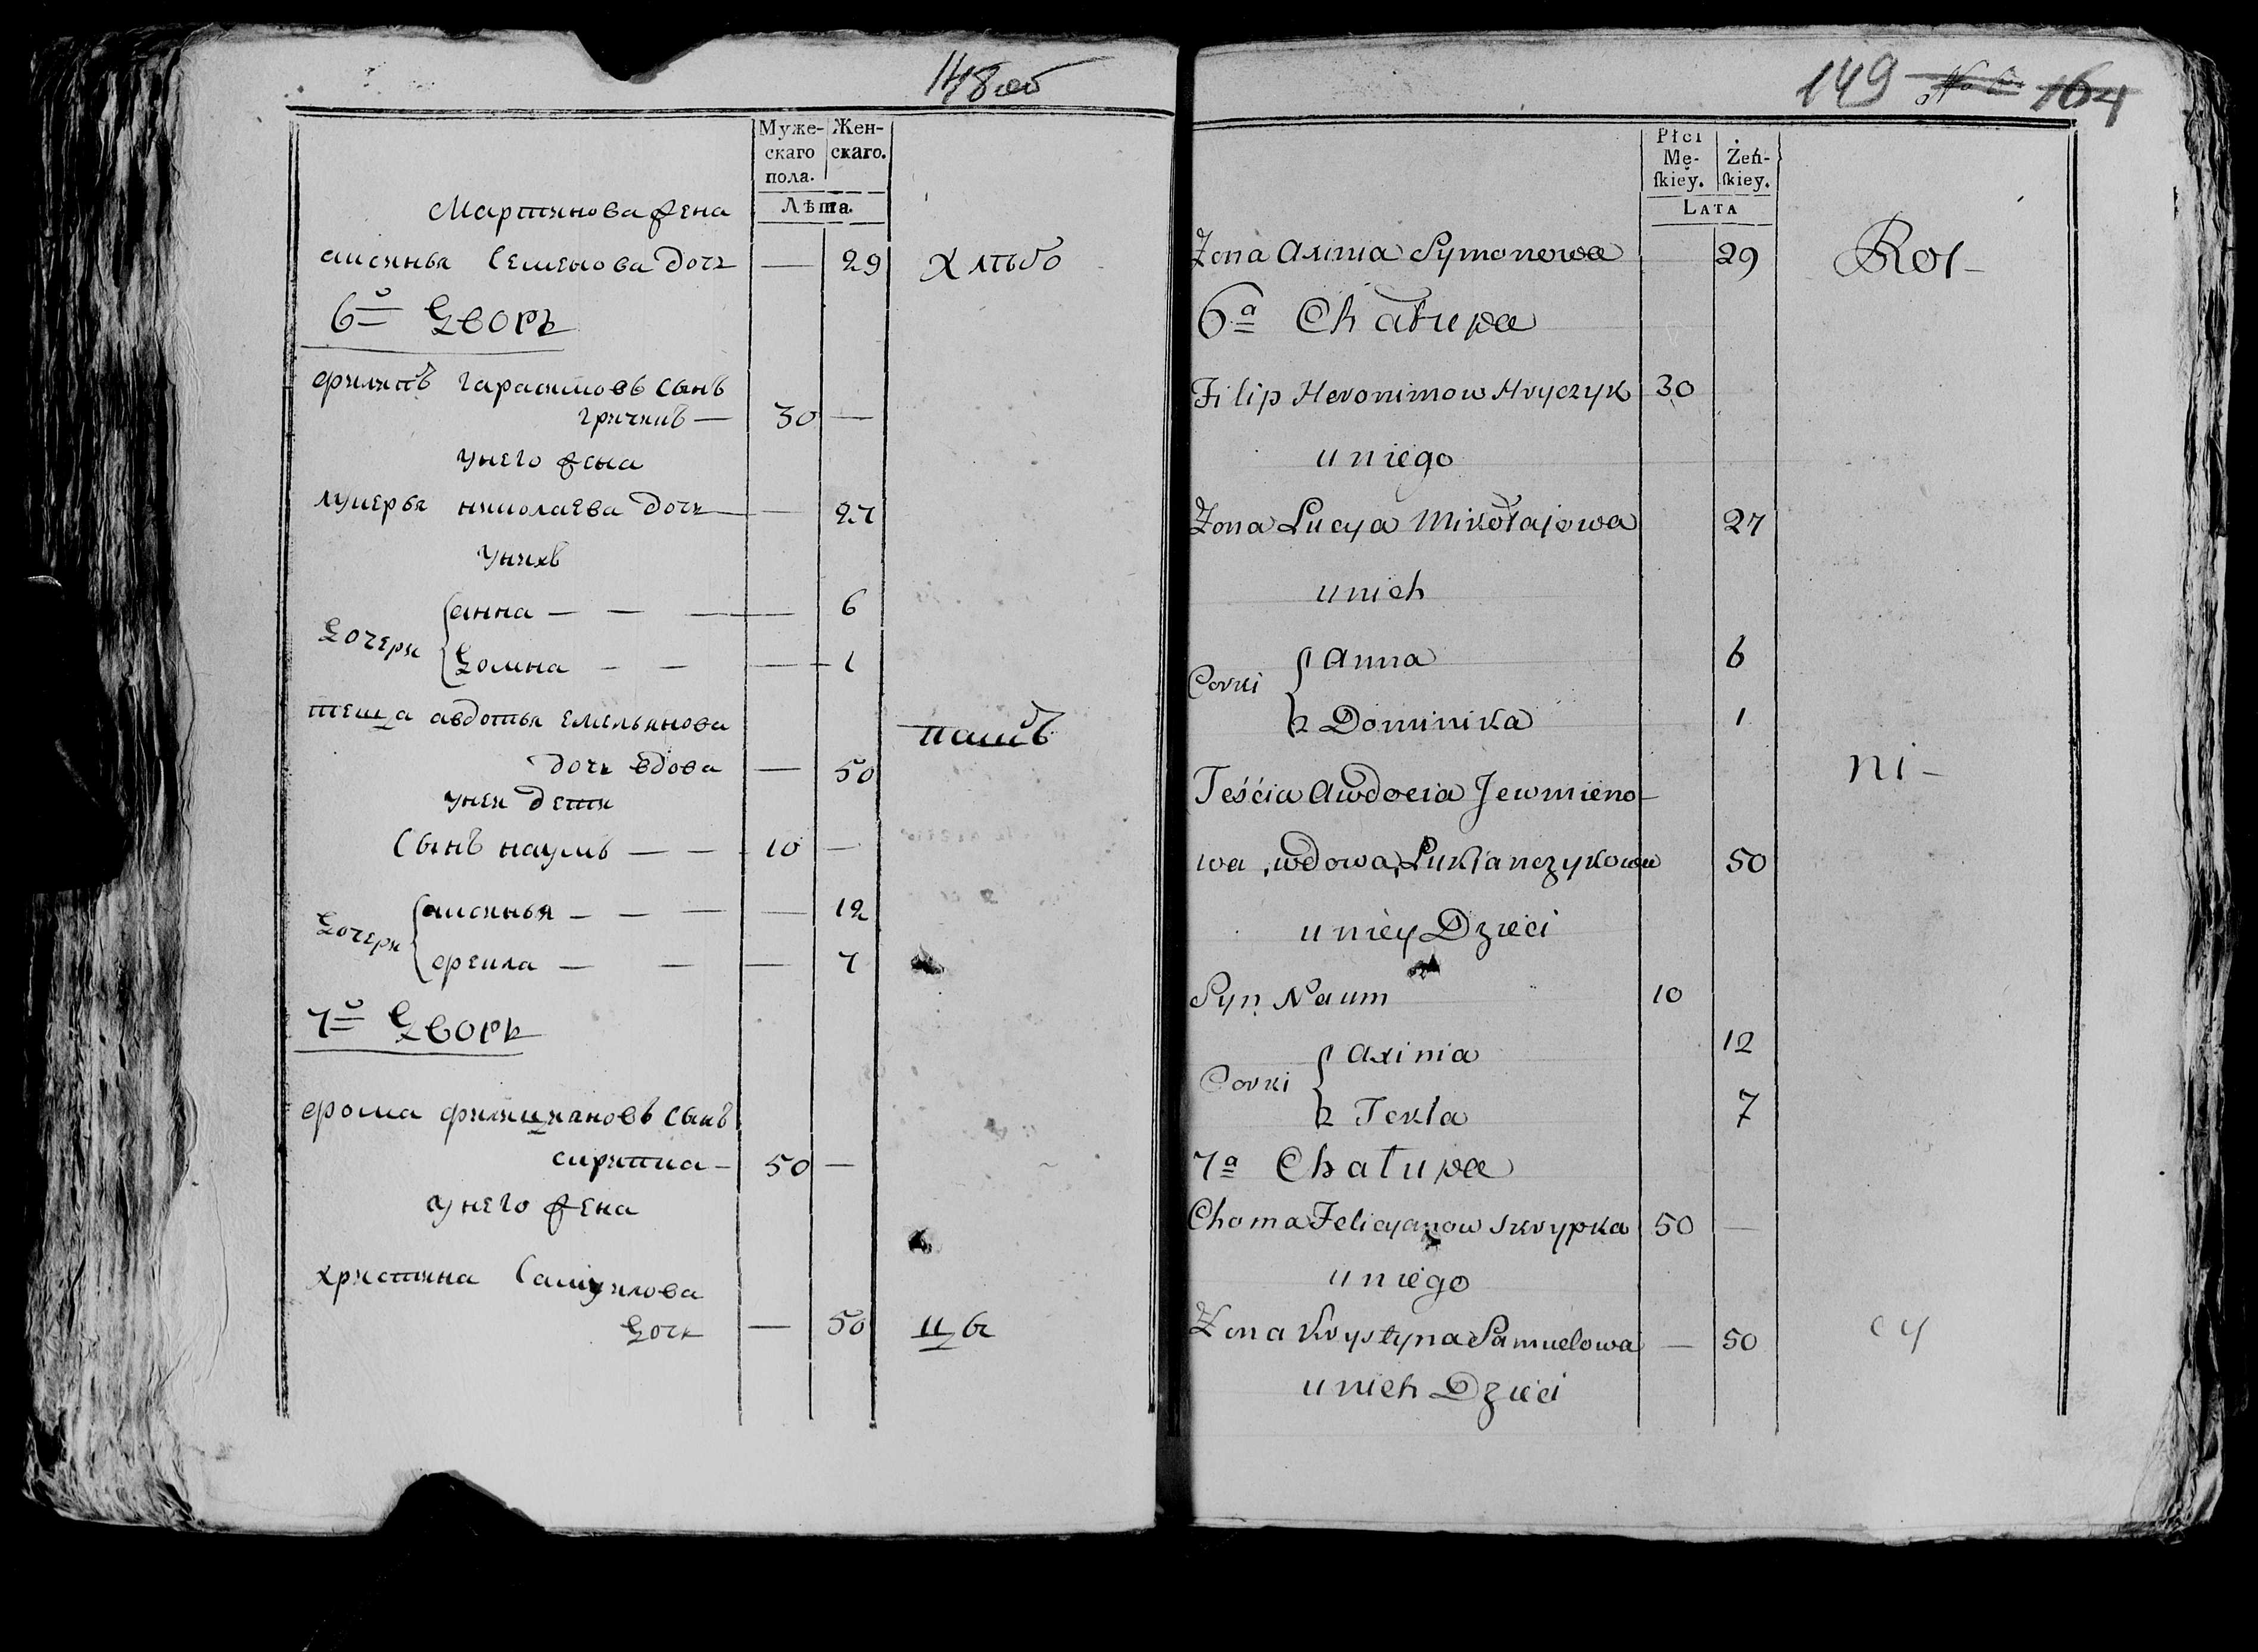 148 об
Муже-
скаго
пола.
Жен-
скаго.
Лѣта.
Мартинова жена
аксинья Семенова дочь — 29 Хлѣбо
6й Дворъ
филипъ гарасимовъ Сынъ
гричикъ — 30 —
унего жена
лукерья николаева дочь — 27
унихъ
Дочери
анна — — — — 6
Домна — — — 1
теща авдотья емельянова
дочь вдова — 50
пашъ
унеи дети
Сынъ наумъ — — 10 —
Дочери
аксинья — — — — 12
фекла — — — 7
7й Дворъ
фома фелициановъ сынъ
скрипка — 50 —
унего жена
христина Самуилова
Дочь — 50 цы
149 164
Płci
Mę-
ſkiey.
Żeń-
ſkiey.
Lata
Żona Axinia Symonowa 29 Rol-
6a Chałupa
Filip Heronimow Hryczyk 30
u niego
Żona Lucya Mikołajowa 27
u nich
Corki
Anna 6
Dominika 1
ni-
Teścia Awdocia Jewmieno-
wa, wdowa, Lukjanczykowa 50
u niey Dzieci
Syn Naum 10
Corki
Axinia 12
Tekla 7
7a Chałupa
Choma Felicyanow Skrypka 50 —
u niego
Żona Krystyna Samuelowa — 50 cy
u nich Dzieci